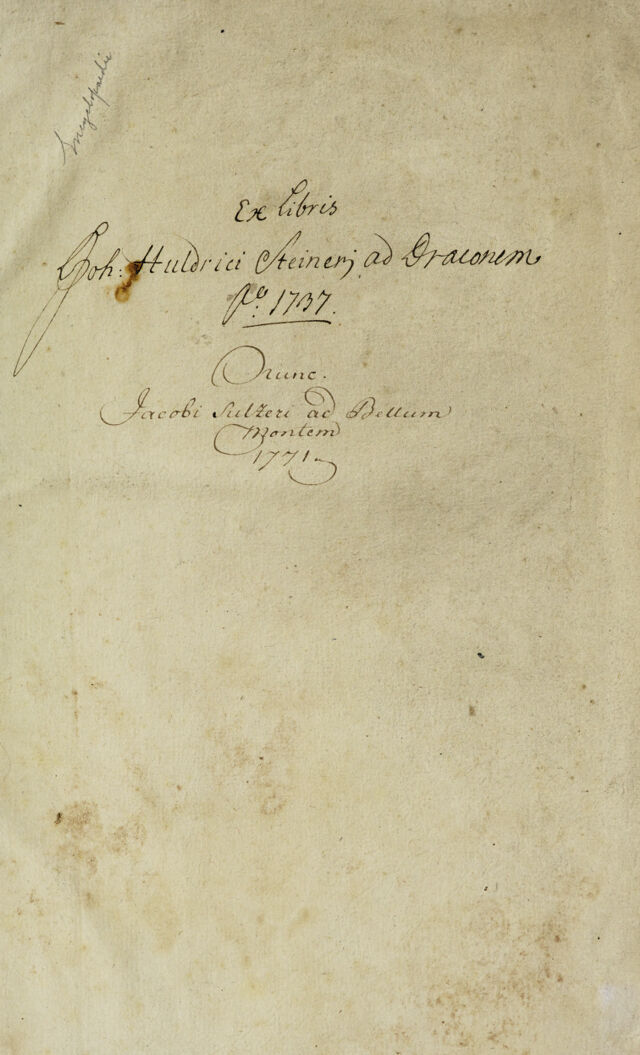 Encyclopaedie
Ex Libris
Joh: Huldrici Steinerj ad Draconem
Ao. 1737.
nunc.
Jacobi Sulzeri ad Bellum
Montem
1771